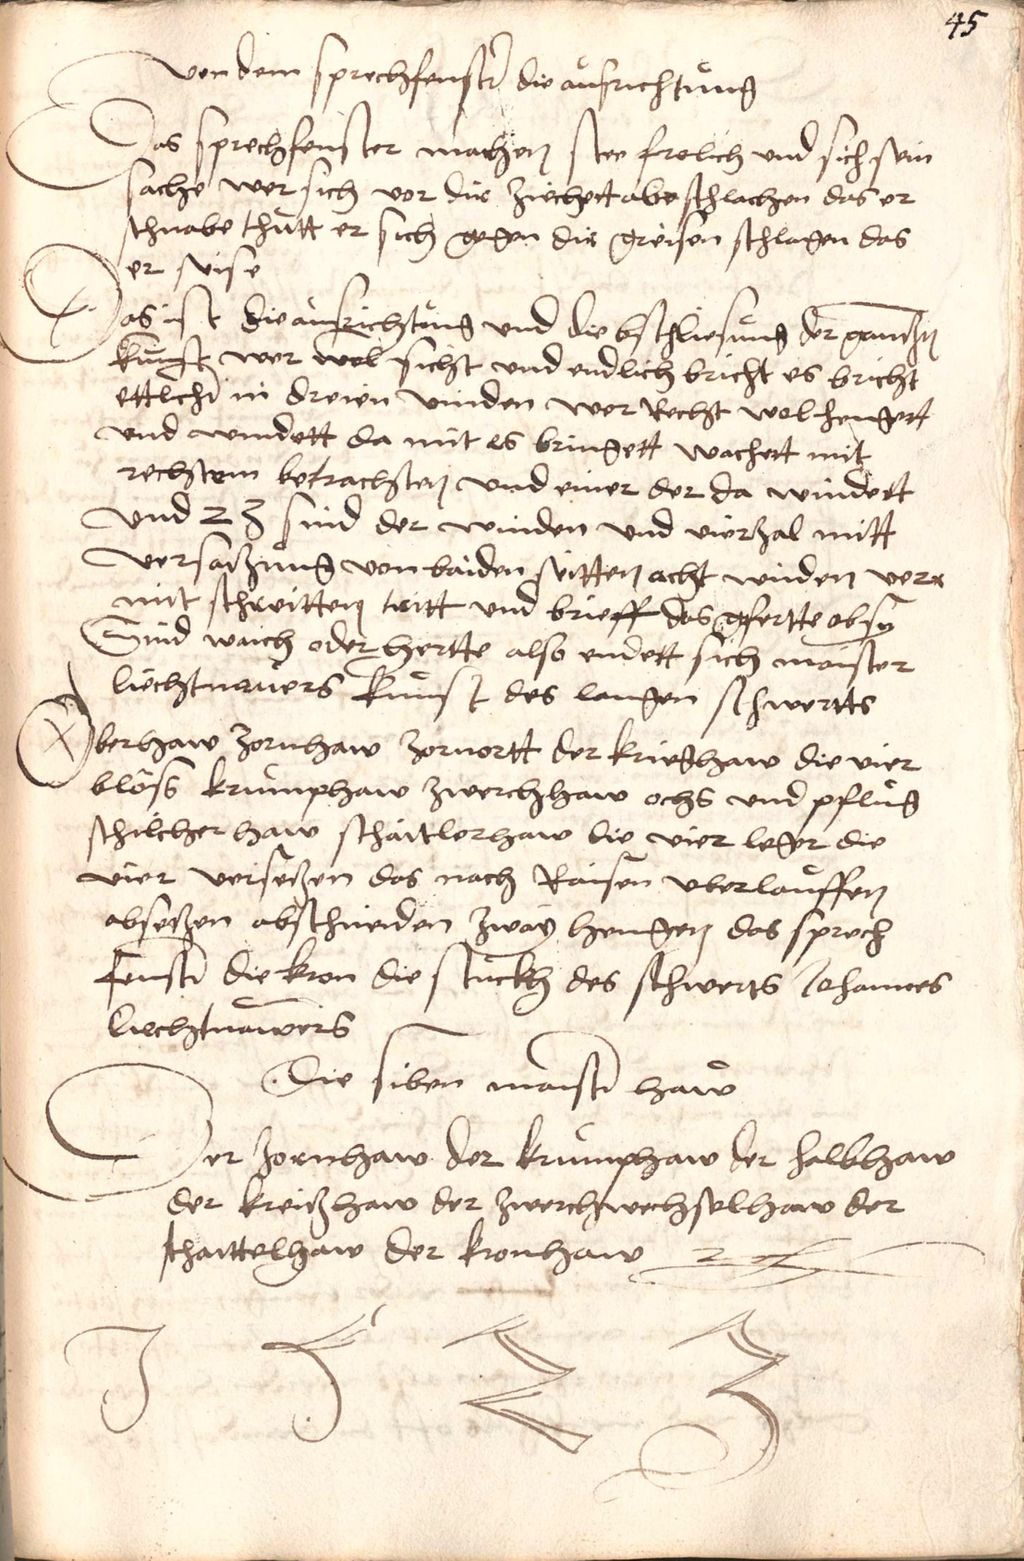 45
Von dem sprechfenster die aufrichtung
Das sprechfenster machen stee frolich und sich sein
sache wer sich vor dir ziechett abe schlachen das er
schnabe thutt er sich gegen dir greisen schlagen das
er seise
Das ist die aufrichtung und die bschliesung der ganntzen
kunst wer wol sicht und endlich bricht es bricht
ettlich in dreien winden wer Recht wol hengett
und windett da mit es bringett wachett mit
rechtem betrachten und einer der da windett
und 23 sind der winden und vierzal mitt
versatzung von baiden seitten acht winden
mit schreitten tritt und brieff das gfertte ob sy
Sind waich oder hertte also endett sich maister
liechtnauers kunst des langen schwertts
Oberhaw zornhaw zornortt der krieghaw die vier
blöss krumphaw zwerchhaw ochs und pflug
schilcher haw schaitlerhaw die vier leger die
vier versetzen das nach Raisen uberlauffen
absetzen abschneiden zway hengen das sprech
fenster die kron die stuckh des schwerts Johannes
liechtnawers
Die siben maister haw
Der zornhaw der krumphaw der halbhaw
der kreitzhaw der zwerchwechselhaw der
schaittelhaw der kronhaw
1 5 2 3